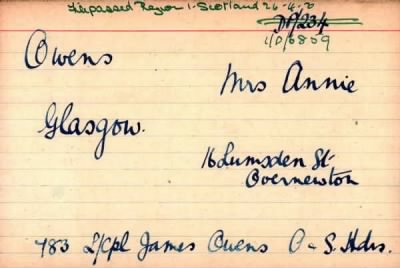 Trepassed Region 1 - Scotland 26-4-0
DP/234
1/D/6859
Owens
Mrs Annie
Glasgow.
16 Lumsden St-
Overnewton
783 L/Cpl James Owens A & S. Hdrs.